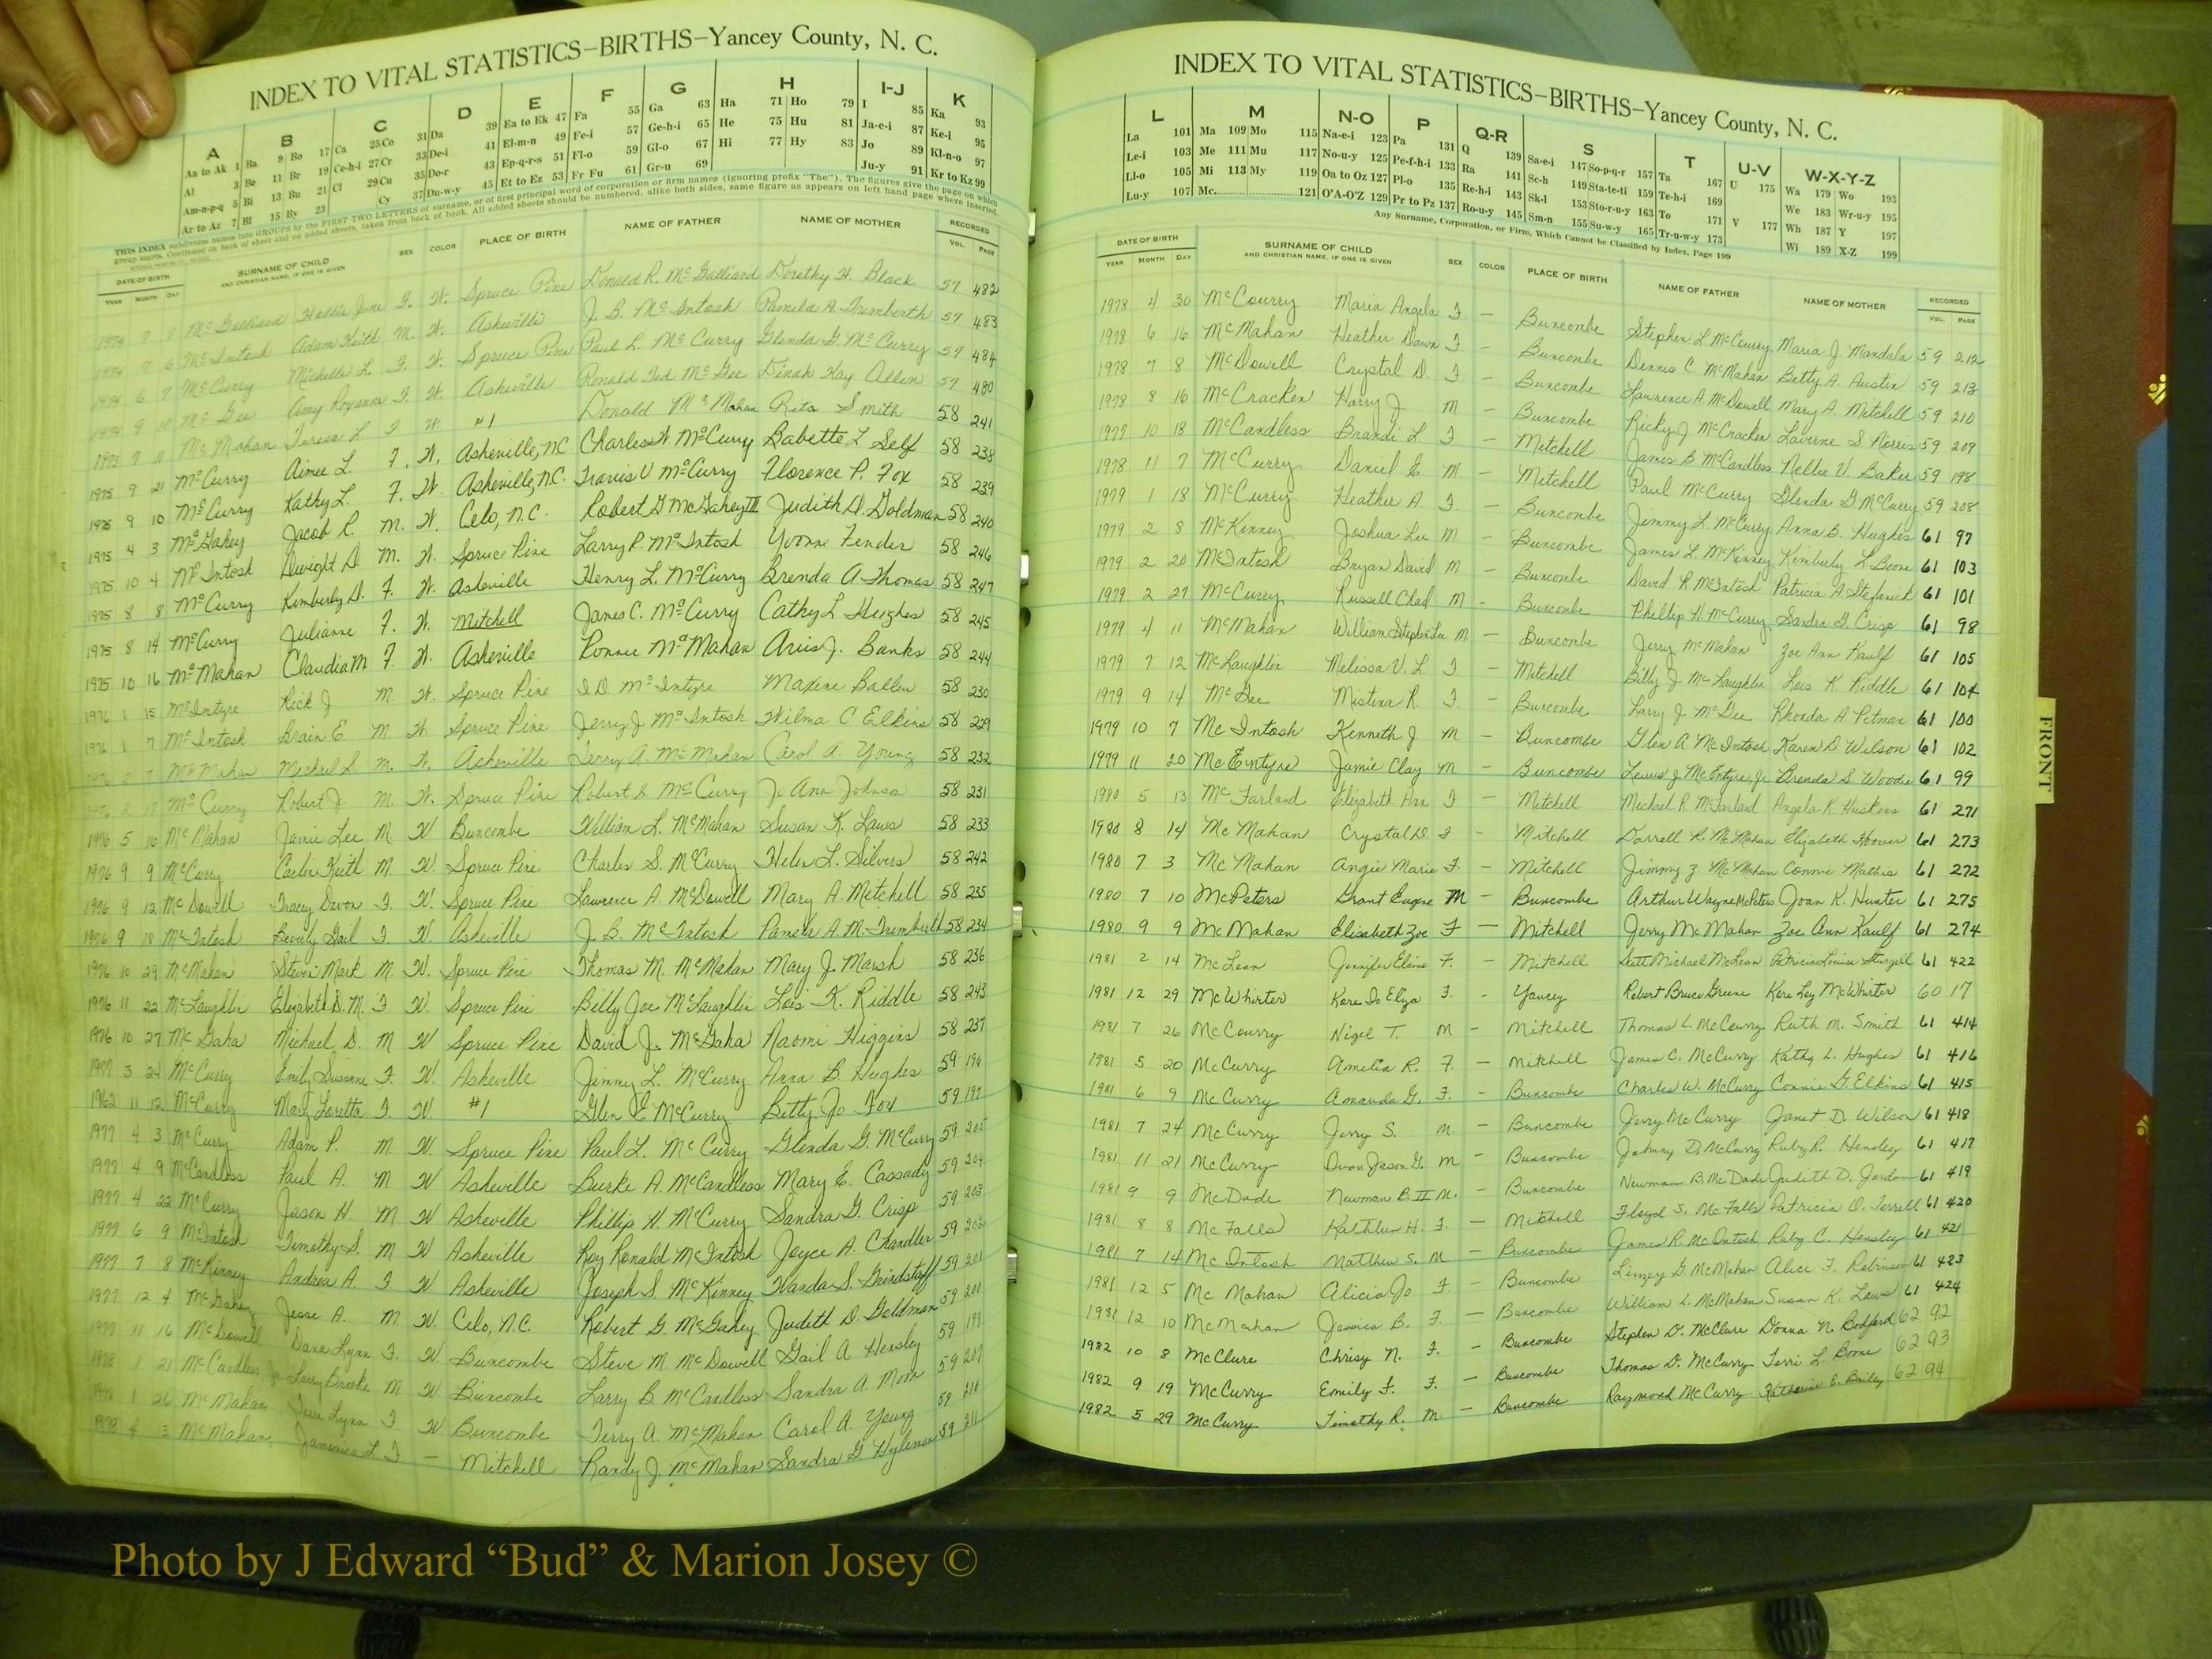 INDEX TO VITAL STATISTICS–BIRTHS–Yancey County, N. C.
A B C D E F G H I-J K
Aa to Ak 1 Ba 9 Bo 17 Ca 25 Co 31 Da 39 Ea to Ek 47 Fa 55 Ga 63 Ha 71 Ho 79 I 85 Ka 93
Al 3 Be 11 Br 19 Ce-h-i 27 Cr 33 De-i 41 El-m-n 49 Fe-i 57 Ge-h-i 65 He 75 Hu 81 Ja-e-i 87 Ke-i 95
Am-n-p-q 5 Bi 13 Bu 21 Cl 29 Cu 35 Do-r 43 Ep-q-r-s 51 Fl-o 59 Gl-o 67 Hi 77 Hy 83 Jo 89 Kl-n-o 97
Ar to Az 7 Bl 15 By 23 Cy 37 Du-w-y 45 Et to Ez 53 Fr Fu 61 Gr-u 69 Ju-y 91 Kr to Kz 99
THIS INDEX subdivides names into GROUPS by the FIRST TWO LETTERS of surname, or of first principal word of corporation or firm names (ignoring prefix "The"). The figures give the page on which
group starts. Continued on back of sheet and on added sheets, taken from back of book. All added sheets should be numbered, alike both sides, same figure as appears on left hand page where inserted.
DATE OF BIRTH SURNAME OF CHILD SEX COLOR PLACE OF BIRTH NAME OF FATHER NAME OF MOTHER RECORDED
YEAR MONTH DAY AND CHRISTIAN NAME, IF ONE IS GIVEN VOL. PAGE
McGalliard Hollie Jane F. W. Spruce Pine Donald R. McGalliard Dorothy H. Black 57 482
McIntosh Adam Keith M. W. Asheville J. B. McIntosh Pamela A. Tremberth 57 483
McCurry Michelle L. F. W. Spruce Pine Paul L. McCurry Glenda G. McCurry 57 484
McGee Amy F W. Asheville Ronald Ted McGee Dinah Kay Allen 57 480
McMahan Teresa L F W #1 Donald McMahan Rita Smith 58 241
1975 9 21 McCurry Aimee L. F. W. Asheville, NC Charles W McCurry Babette L Self 58 238
1975 9 10 McCurry Kathy L. F. W. Asheville, N.C. Travis V McCurry Florence P. Fox 58 239
1975 4 3 McGahey Jacob R. M. W. Celo, N.C. Robert G McGahey III Judith D. Goldman 58 240
1975 10 4 McIntosh Dwight D. M. W. Spruce Pine Larry P. McIntosh Yvonne Fender 58 246
1975 8 8 McCurry Kimberly D. F. W. Asheville Henry L. McCurry Brenda A Thomas 58 247
1975 8 14 McCurry Julianne F. W. Mitchell James C. McCurry Cathy L Hughes 58 245
1975 10 16 McMahan Claudia M F. W. Asheville Ronnie McMahan J. Banks 58 244
1976 1 15 McIntyre Rick J M. W. Spruce Pine I.D. McIntyre Maxine Ballew 58 230
1976 1 7 McIntosh Brain E. M W. Spruce Pine Jerry J McIntosh Wilma C Elkins 58 229
McMahan Michael L. M. W. Asheville Terry A. McMahan Carol A. Young 58 232
McCurry Robert J. M. W. Spruce Pine Robert S McCurry Jo Ann Johnson 58 231
1976 5 16 McMahan Jamie Lee M. W Buncombe William L. McMahan Susan K. Laws 58 233
1976 9 9 McCurry Keith M. W. Spruce Pine Charles S. McCurry Helen L. Silvers 58 242
1976 9 12 McDowell Tracey Devon F. W. Spruce Pine Lawrence A. McDowell Mary A. Mitchell 58 235
1976 9 18 McIntosh Beverly Gail F W. Asheville J. B. McIntosh Pamela A. M. Tremberth 58 234
1976 10 29 McMahan Steven Mark M. W. Spruce Pine Thomas M. McMahan Mary J. Marsh 58 236
1976 11 22 McLaughlin Elizabeth D. M. F W. Spruce Pine Billy Joe McLaughlin Lois K. Riddle 58 243
1976 10 27 McGaha Michael D. M W Spruce Pine David J. McGaha Naomi Higgins 58 237
1977 3 24 McCurry Emily Susanne F. W. Asheville Jimmy L. McCurry Anna B. Hughes 59 196
1962 11 12 McCurry Mary Loretta F. W #1 Glen E McCurry Betty Jo Fox 59 197
1977 4 3 McCurry Adam P. M. W. Spruce Pine Paul L. McCurry Glenda G. McCurry 59 205
1977 4 9 McCandless Paul A. M W Asheville Burke A. McCandless Mary E. Cassady 59 204
1977 4 22 McCurry Jason H. M W Asheville Phillip H. McCurry Sandra G. Crisp 59 203
1977 6 9 McIntosh Timothy S. M W Asheville Roy Ronald McIntosh Joyce A. Chandler 59 202
1977 7 8 McKinney Andrea A. F W Asheville Joseph S McKinney Wanda S. Grindstaff 59 201
1977 12 4 McGahey Jesse A. M W. Celo, N.C. Robert G. McGahey Judith D. Goldman 59 200
1977 11 16 McDowell Dana Lynn F. W Buncombe Steve M. McDowell Gail A Hensley 59 199
1978 1 21 McCandless Jr Larry Brooks M W Buncombe Larry B. McCandless Sandra A. 59 207
1978 1 26 McMahan Lynn F W Buncombe Terry A. McMahan Carol A. Young 59 210
1978 4 13 McMahan L F – Mitchell Randy J. McMahan Sandra G Hyleman 59 211
INDEX TO VITAL STATISTICS–BIRTHS–Yancey County, N. C.
L M N-O P Q-R S T U-V W-X-Y-Z
La 101 Ma 109 Mo 115 Na-e-i 123 Pa 131 Q 139 Sa-e-i 147 So-p-q-r 157 Ta 167 U 175 Wa 179 Wo 193
Le-i 103 Me 111 Mu 117 No-u-y 125 Pe-f-h-i 133 Ra 141 Sc-h 149 Sta-te-ti 159 Te-h-i 169 We 183 Wr-u-y 195
Ll-o 105 Mi 113 My 119 Oa to Oz 127 Pl-o 135 Re-h-i 143 Sk-l 153 Sto-r-u-y 163 To 171 V 177 Wh 187 Y 197
Lu-y 107 Mc 121 O'A-O'Z 129 Pr to Pz 137 Ro-u-y 145 Sm-n 155 Su-w-y 165 Tr-u-w-y 173 Wi 189 X-Z 199
Any Surname, Corporation, or Firm, Which Cannot be Classified by Index, Page 199
DATE OF BIRTH SURNAME OF CHILD SEX COLOR PLACE OF BIRTH NAME OF FATHER NAME OF MOTHER RECORDED
YEAR MONTH DAY AND CHRISTIAN NAME, IF ONE IS GIVEN VOL. PAGE
1978 4 30 McCourry Maria Angela F – Buncombe Stephen L McCourry Maria J. Mandala 59 212
1978 6 16 McMahan Heather Dawn F – Buncombe Dennis C. McMahan Betty A. Austin 59 213
1978 7 8 McDowell Crystal D. F – Buncombe Lawrence A McDowell Mary A. Mitchell 59 210
1978 8 16 McCracken Harry J. M – Buncombe Ricky J McCracken Laverne S. Norris 59 209
1977 10 18 McCandless Brandi L F – Mitchell James B McCandless Nellie V. Baker 59 198
1978 11 7 McCurry Daniel E. M – Mitchell Paul McCurry Glenda G McCurry 59 208
1979 1 18 McCurry Heather A F. – Buncombe Jimmy L. McCurry Anna B. Hughes 61 97
1979 2 8 McKinney Joshua Lee M – Buncombe James L. McKinney Kimberly L. Boone 61 103
1979 2 20 McIntosh Bryan David M – Buncombe David R McIntosh Patricia A Stefanick 61 101
1979 2 27 McCurry Russell Chad M – Buncombe Phillip H. McCurry Sandra G. Crisp 61 98
1979 4 11 McMahan William Stephen Lee M – Buncombe Jerry McMahan Zoe Ann Kaulf 61 105
1979 7 12 McLaughlin Melissa V. L. F – Mitchell Billy J McLaughlin Lois K. Riddle 61 104
1979 9 14 McGee Mistina R. F – Buncombe Larry J. McGee Rhonda A Pitman 61 100
1979 10 7 McIntosh Kenneth J M – Buncombe Glen A McIntosh Karen D. Wilson 61 102
1979 11 20 McEntyre Jamie Clay M – Buncombe Lewis J McEntyre, Jr Brenda S. Woodie 61 99
1980 5 13 McFarland Elizabeth Ann F – Mitchell Michael R McFarland Angela K Huskins 61 271
1980 8 14 McMahan Crystal D. F – Mitchell Darrell R. McMahan Elizabeth Hoover 61 273
1980 7 3 McMahan Angie Marie F. – Mitchell Jimmy Z. McMahan Connie Mathis 61 272
1980 7 10 McPeters Grant Eugene M – Buncombe Arthur Wayne McPeters Joan K. Hunter 61 275
1980 9 9 McMahan Elisabeth Zoe F – Mitchell Jerry McMahan Zoe Ann Kaulf 61 274
1981 2 14 McLean Jennifer Elaine F. – Mitchell Scott Michael McLean Patricia Louise Sturgell 61 422
1981 12 29 McWhirter Kara Jo Eliza F. – Yancey Robert Bruce Greene Kare Ley McWhirter 60 17
1981 7 26 McCourry Nigel T. M – Mitchell Thomas L. McCourry Ruth M. Smith 61 414
1981 5 20 McCurry Amelia R. F. – Mitchell James C. McCurry Kathy L. Hughes 61 416
1981 6 9 McCurry Amanda G. F. – Buncombe Charles W. McCurry Connie G. Elkins 61 415
1981 7 24 McCurry Jerry S. M. – Buncombe Jerry McCurry Janet D. Wilson 61 418
1981 11 21 McCurry Jason G. M – Buncombe Johnny D. McCurry Ruby R. Hensley 61 417
1981 9 9 McDade Newman B. II M. – Buncombe Newman B. McDade Judith D. Jordan 61 419
1981 8 8 McFalls Kathleen H. F. – Mitchell Floyd S. McFalls Patricia O. Terrell 61 420
1981 7 14 McIntosh Matthew S. M – Buncombe James R. McIntosh Ruby C. Hensley 61 421
1981 12 5 McMahan Alicia Jo F – Buncombe Linzey G. McMahan Alice F. Robinson 61 423
1981 12 10 McMahan Jessica B. F. – Buncombe William L. McMahan Susan K. Laws 61 424
1982 10 8 McClure Chrisy N. F. – Buncombe Stephen D. McClure Donna N. Bodford 62 92
1982 9 19 McCurry Emily F. F. – Buncombe Thomas D. McCurry Terri L. Boone 62 93
1982 5 29 McCurry Timothy R. M. – Buncombe Raymond McCurry Katherine E. Bailey 62 94
FRONT
Photo by J Edward “Bud” & Marion Josey ©